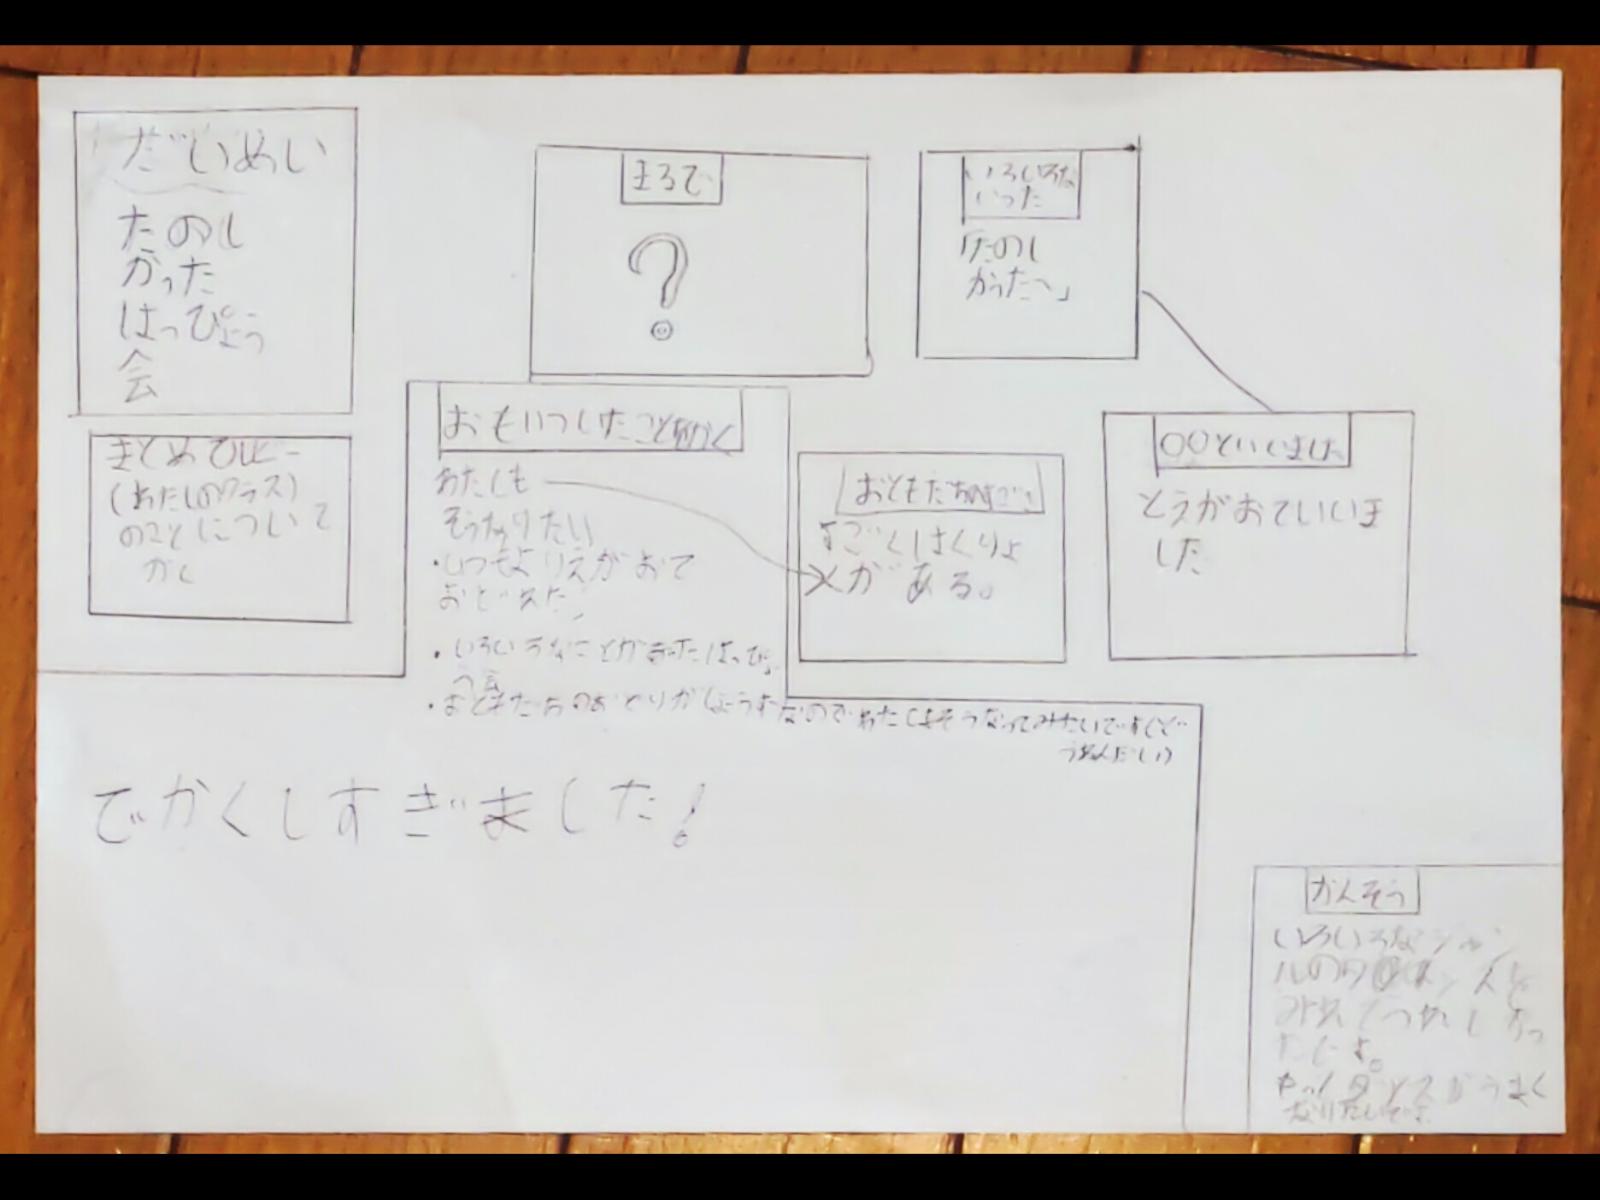 だいめい
たのし
かった
はっぴょう
会
まるで
?
いろいろな
いった
「たのし
かった〜」
まとめてひに
(わたしのクラス)
のことについて
かく
おもいつしたことをかく
わたしも
そうなりたい
・いつもよりえがおで
おどれた
・いろいろなことがあったはっぴょ
う会
・おともだちのおどりがじょうずなのでわたしもそうなってみたいです(ど
うぬんだい)
おともだちのすごい
すごくはくりょ
くがある。
〇〇といいました
とえがおでいいま
した
でかくしすぎました!
かんそう
いろいろなジャン
ルのダンスを
みれてうれしかっ
たです。
もっとダンスがうまく
なりたいです